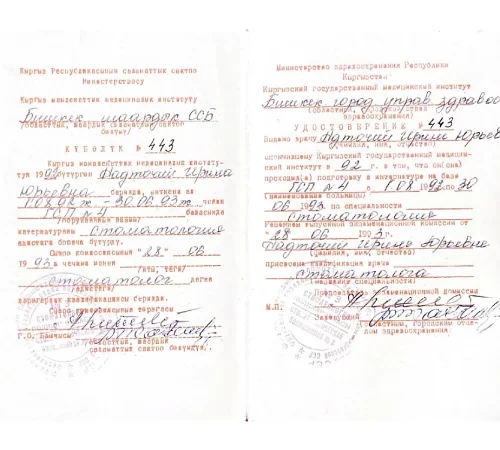 Кыргыз Республикасынын саламаттык сактоо
Министерствосу
Кыргыз мамлекеттик медициналык институту
Бишкек шаардык ССБ
КҮБӨЛҮК № 443
Кыргыз мамлекеттик медициналык институ-
тун 1992 бүтүргөн Надточий Ирина
Юрьевна берилди, анткени ал
1.08.92 ж - 30.06.93 ж. чейин
ГСП №4 базасында
интернатураны стоматология
адистиги боюнча бүтүрдү.
Сыноо комиссиясынын "28" 06
1993 -ж чечими менен
стоматолог деген
дарыгердик квалификациясы берилди.
Сыноо комиссиясынын төрагасы
Министерство здравоохранения Республики
Кыргызстан
Кыргызский государственный медицинский институт
Бишкек город управ здравоо
здравоохранения)
УДОСТОВЕРЕНИЕ № 443
Выдано врачу Надточий Ирине Юрьев
(фамилия, имя, отчество)
окончившему Кыргызский государственный медицин-
ский институт в 92 г. в том, что он(она)
прошел(а) подготовку в интернатуре на базе
ГСП №4 с 1.08.1992 по 30
(наименование больницы)
06 1993 по специальности
стоматология
Решением выпускной экзаменационной комиссии от
28 06 1993 г.
Надточий Ирине Юрьевне
(фамилия, имя, отчество)
присвоена квалификация врача
стоматолога
(название специальности)
Председатель экзаменационной комиссии
М.П.
Заведующий
(областным, городским отде-
лом здравоохранения)